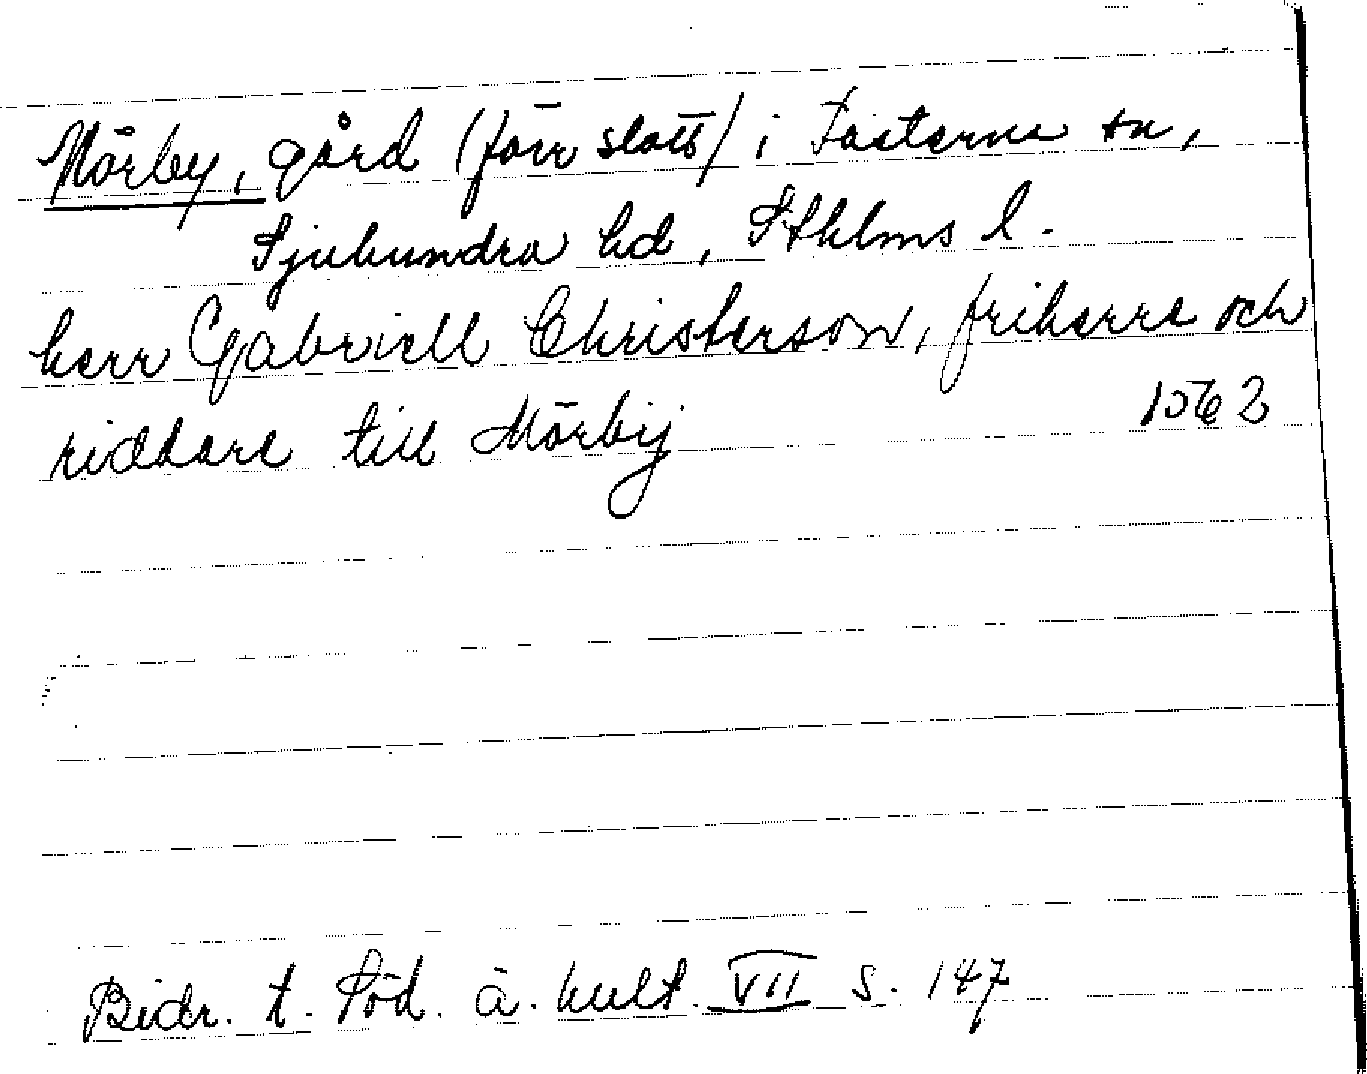 Mörby, gård (förr slott) i Fasterna sn,
Sjuhundra hd, Sthlms l.
herr Gabriell Christerson, friherre och
riddare till Mörbij 1562
Bidr. t. Söd. ä. kult. VII s. 147